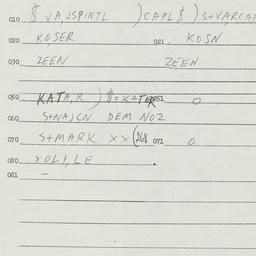 010 $ VA,JSPINTL )CAPL$ ) S+VARCA
020 KOSER 021. KOSN
030 ZEEN ZEEN
050 KATA,R ) $=KATER 051 0
060 S+NAJCN DEM NOZ
070 S+MARK XX(268 071 0
080 XOLI,LE
081 —